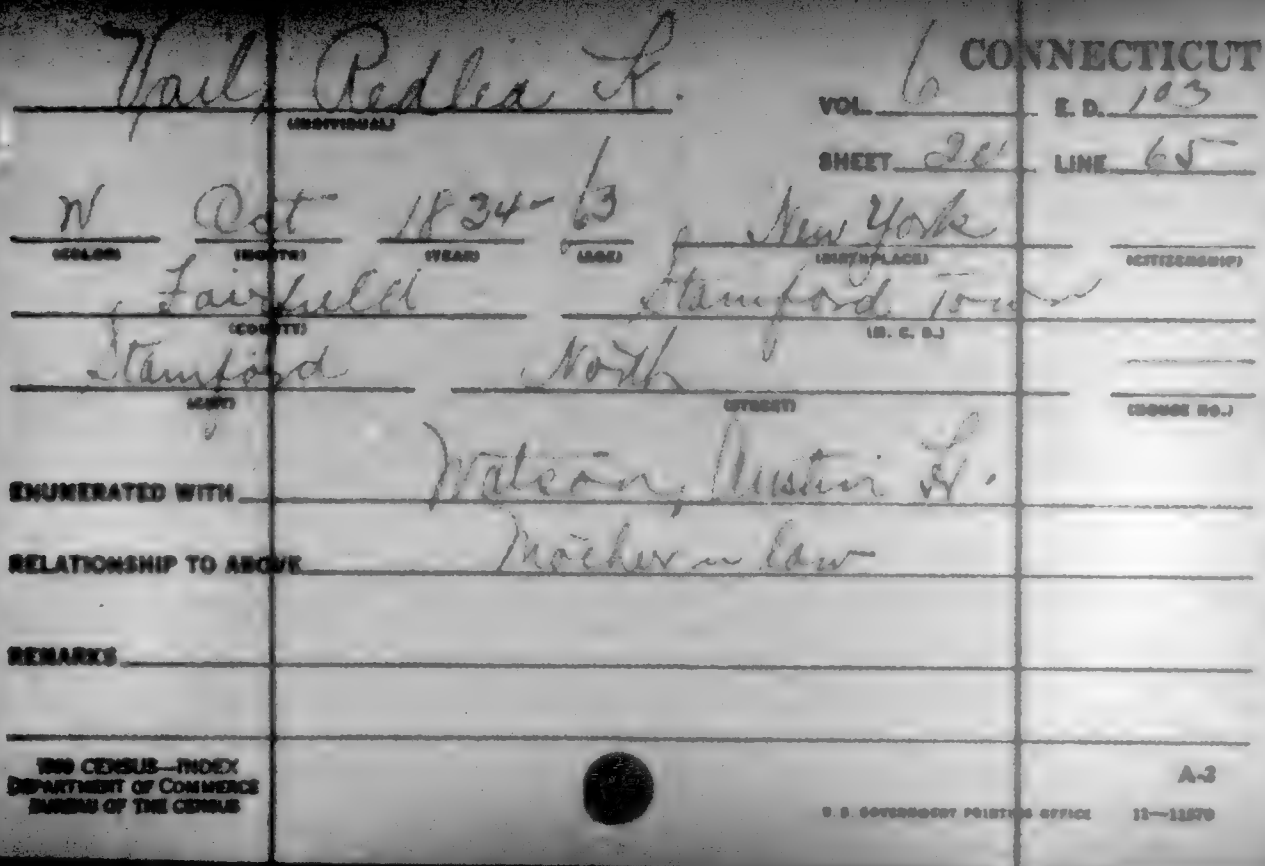 CONNECTICUT
Vail, Redlea K.
(INDIVIDUAL)
VOL. 6 E. D. 103
SHEET LINE 65
W Oct 1834 - 63 New York
(COLOR) (MONTH) (YEAR) (AGE) (BIRTHPLACE) (CITIZENSHIP)
Fairfield Stamford Town
(COUNTY) (M. C. D.)
Stamford North
(CITY) (STREET) (HOUSE NO.)
ENUMERATED WITH Watson, Austin
RELATIONSHIP TO ABOVE Mother in law
REMARKS
CENSUS—INDEX
DEPARTMENT OF COMMERCE
BUREAU OF THE CENSUS
A-2
U.S. GOVERNMENT PRINTING OFFICE 11—11570